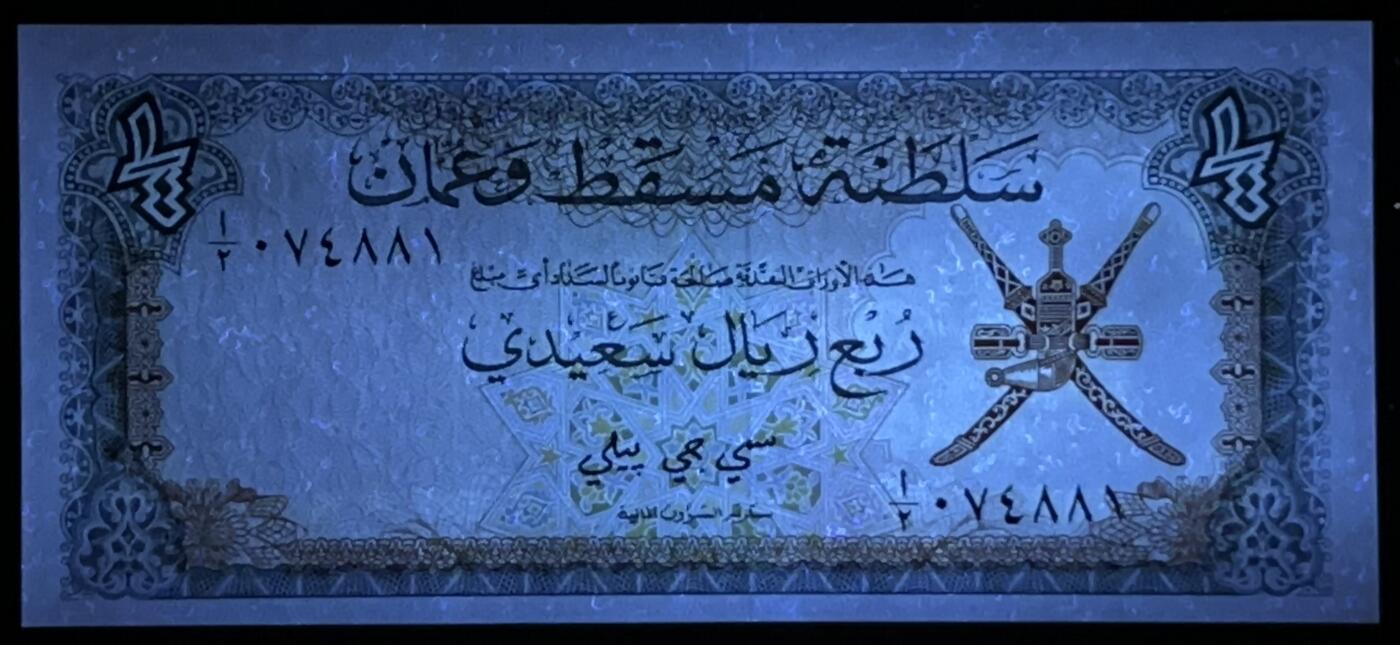 سَلطَنَة مَسقَط وَعُمَان
١/٢ ٠٧٤٨٨١
هذه الأوراق النقدية صالحة قانوناً لسداد أيّ مبلغ
رُبع ريال سَعيدي
سي جي بيلي
سكرتير الشؤون المالية
١/٢ ٠٧٤٨٨١